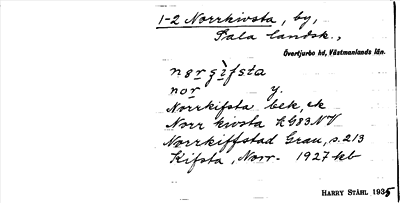 1-2 Norrkivsta, by,
Sala landsk.,
Övertjurbo hd, Västmanlands län.
norçìfsta
nor y.
Norrkifsta bek, ek
Norr kivsta kG83NV
Norrkiffstad Grau, s. 213
Kifsta, Norr- 1927 kb
HARRY STÅHL 1935